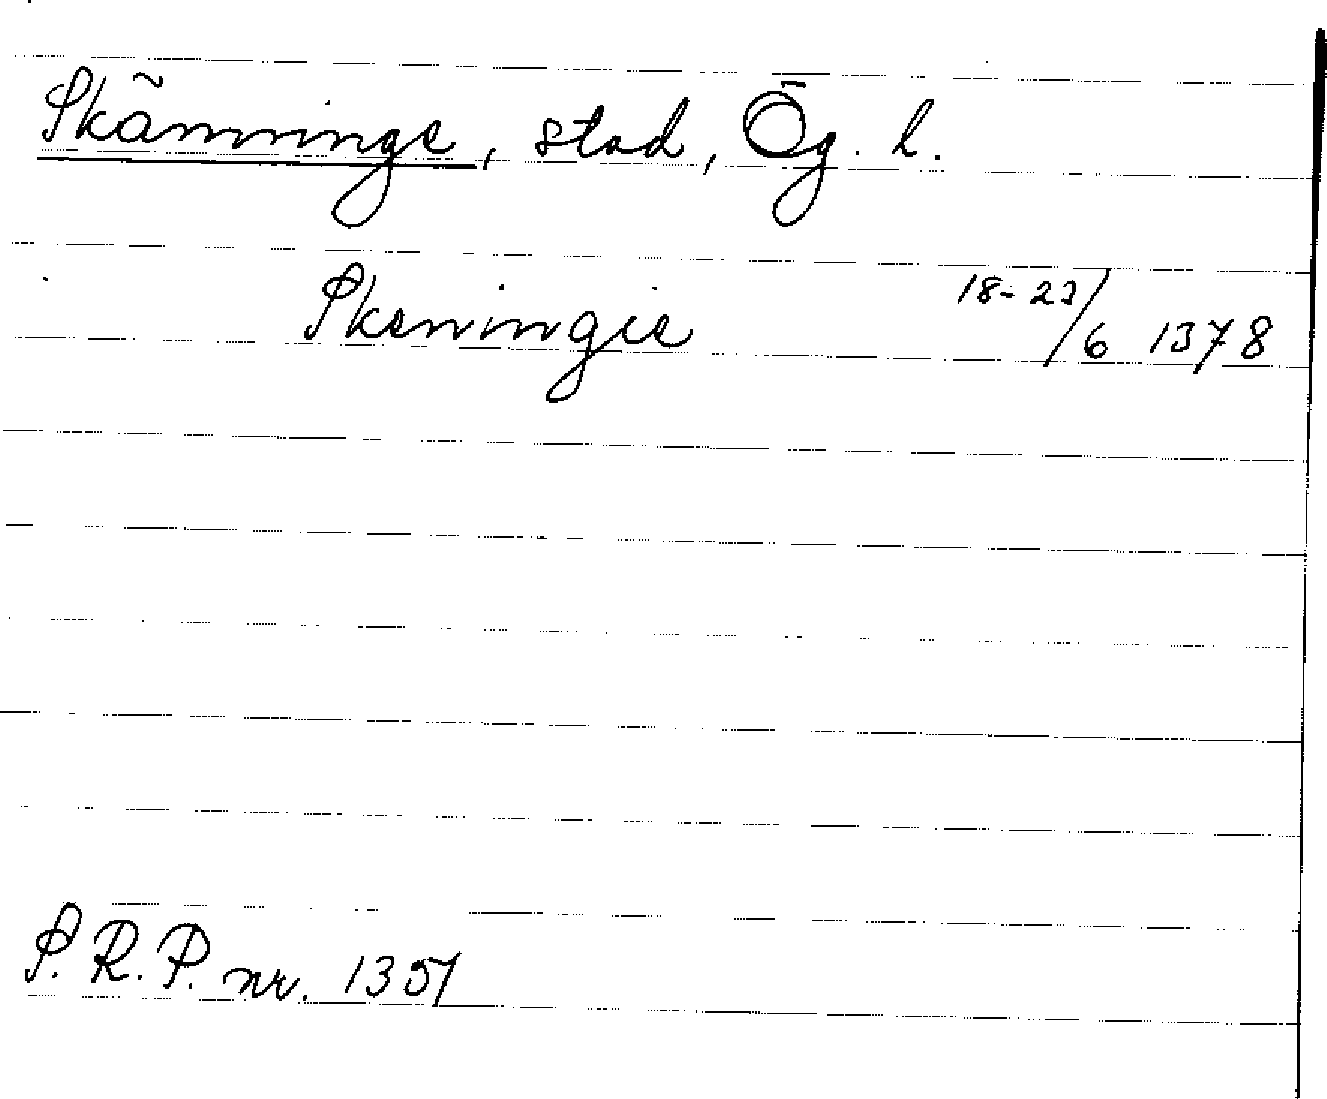 Skänninge, stad, Ög. l.
Skeningie 18-23/6 1378
S. R. P. nr. 1351